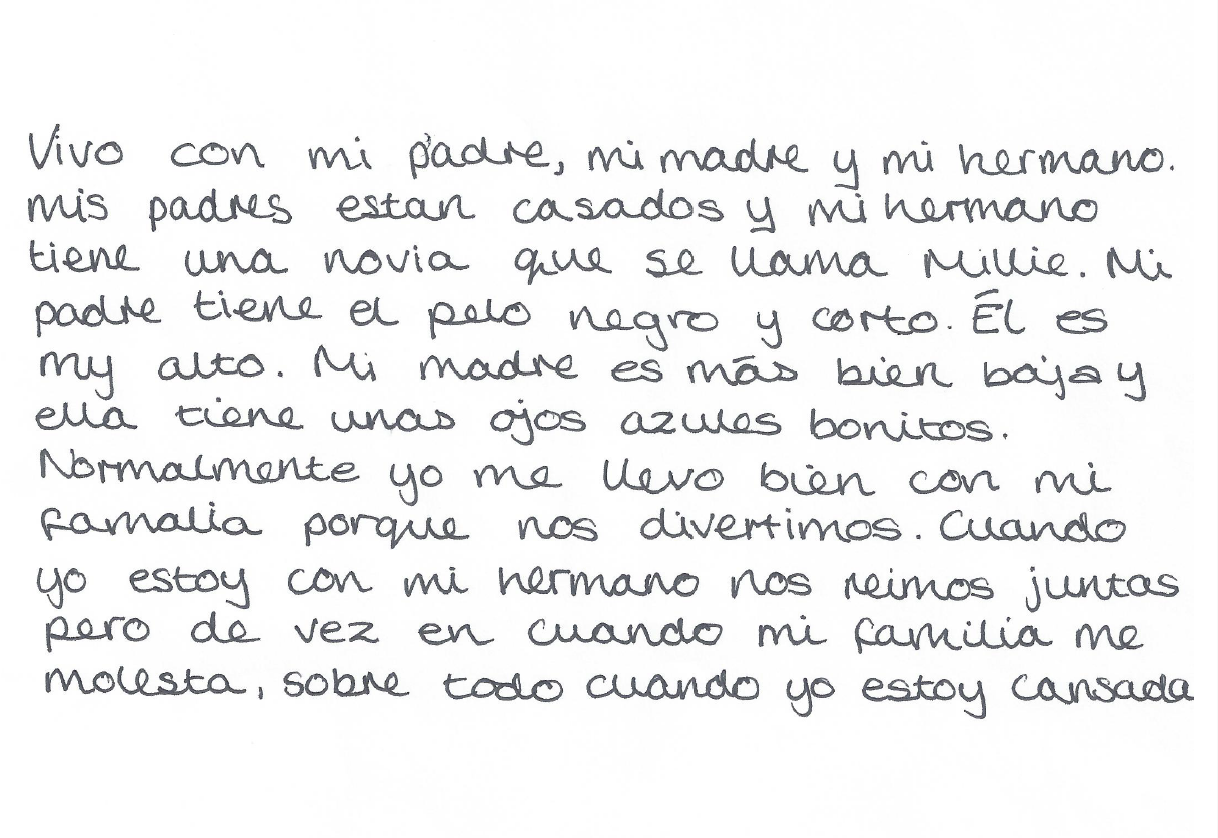 Vivo con mi padre, mi madre y mi hermano.
Mis padres estan casados y mi hermano
tiene una novia que se llama Millie. Mi
padre tiene el pelo negro y corto. Él es
my alto. Mi madre es más bien baja y
ella tiene unas ojos azules bonitos.
Normalmente yo me llevo bien con mi
famalia porque nos divertimos. Cuando
yo estoy con mi hermano nos reimos juntas
pero de vez en cuando mi familia me
molesta, sobre todo cuando yo estoy cansada